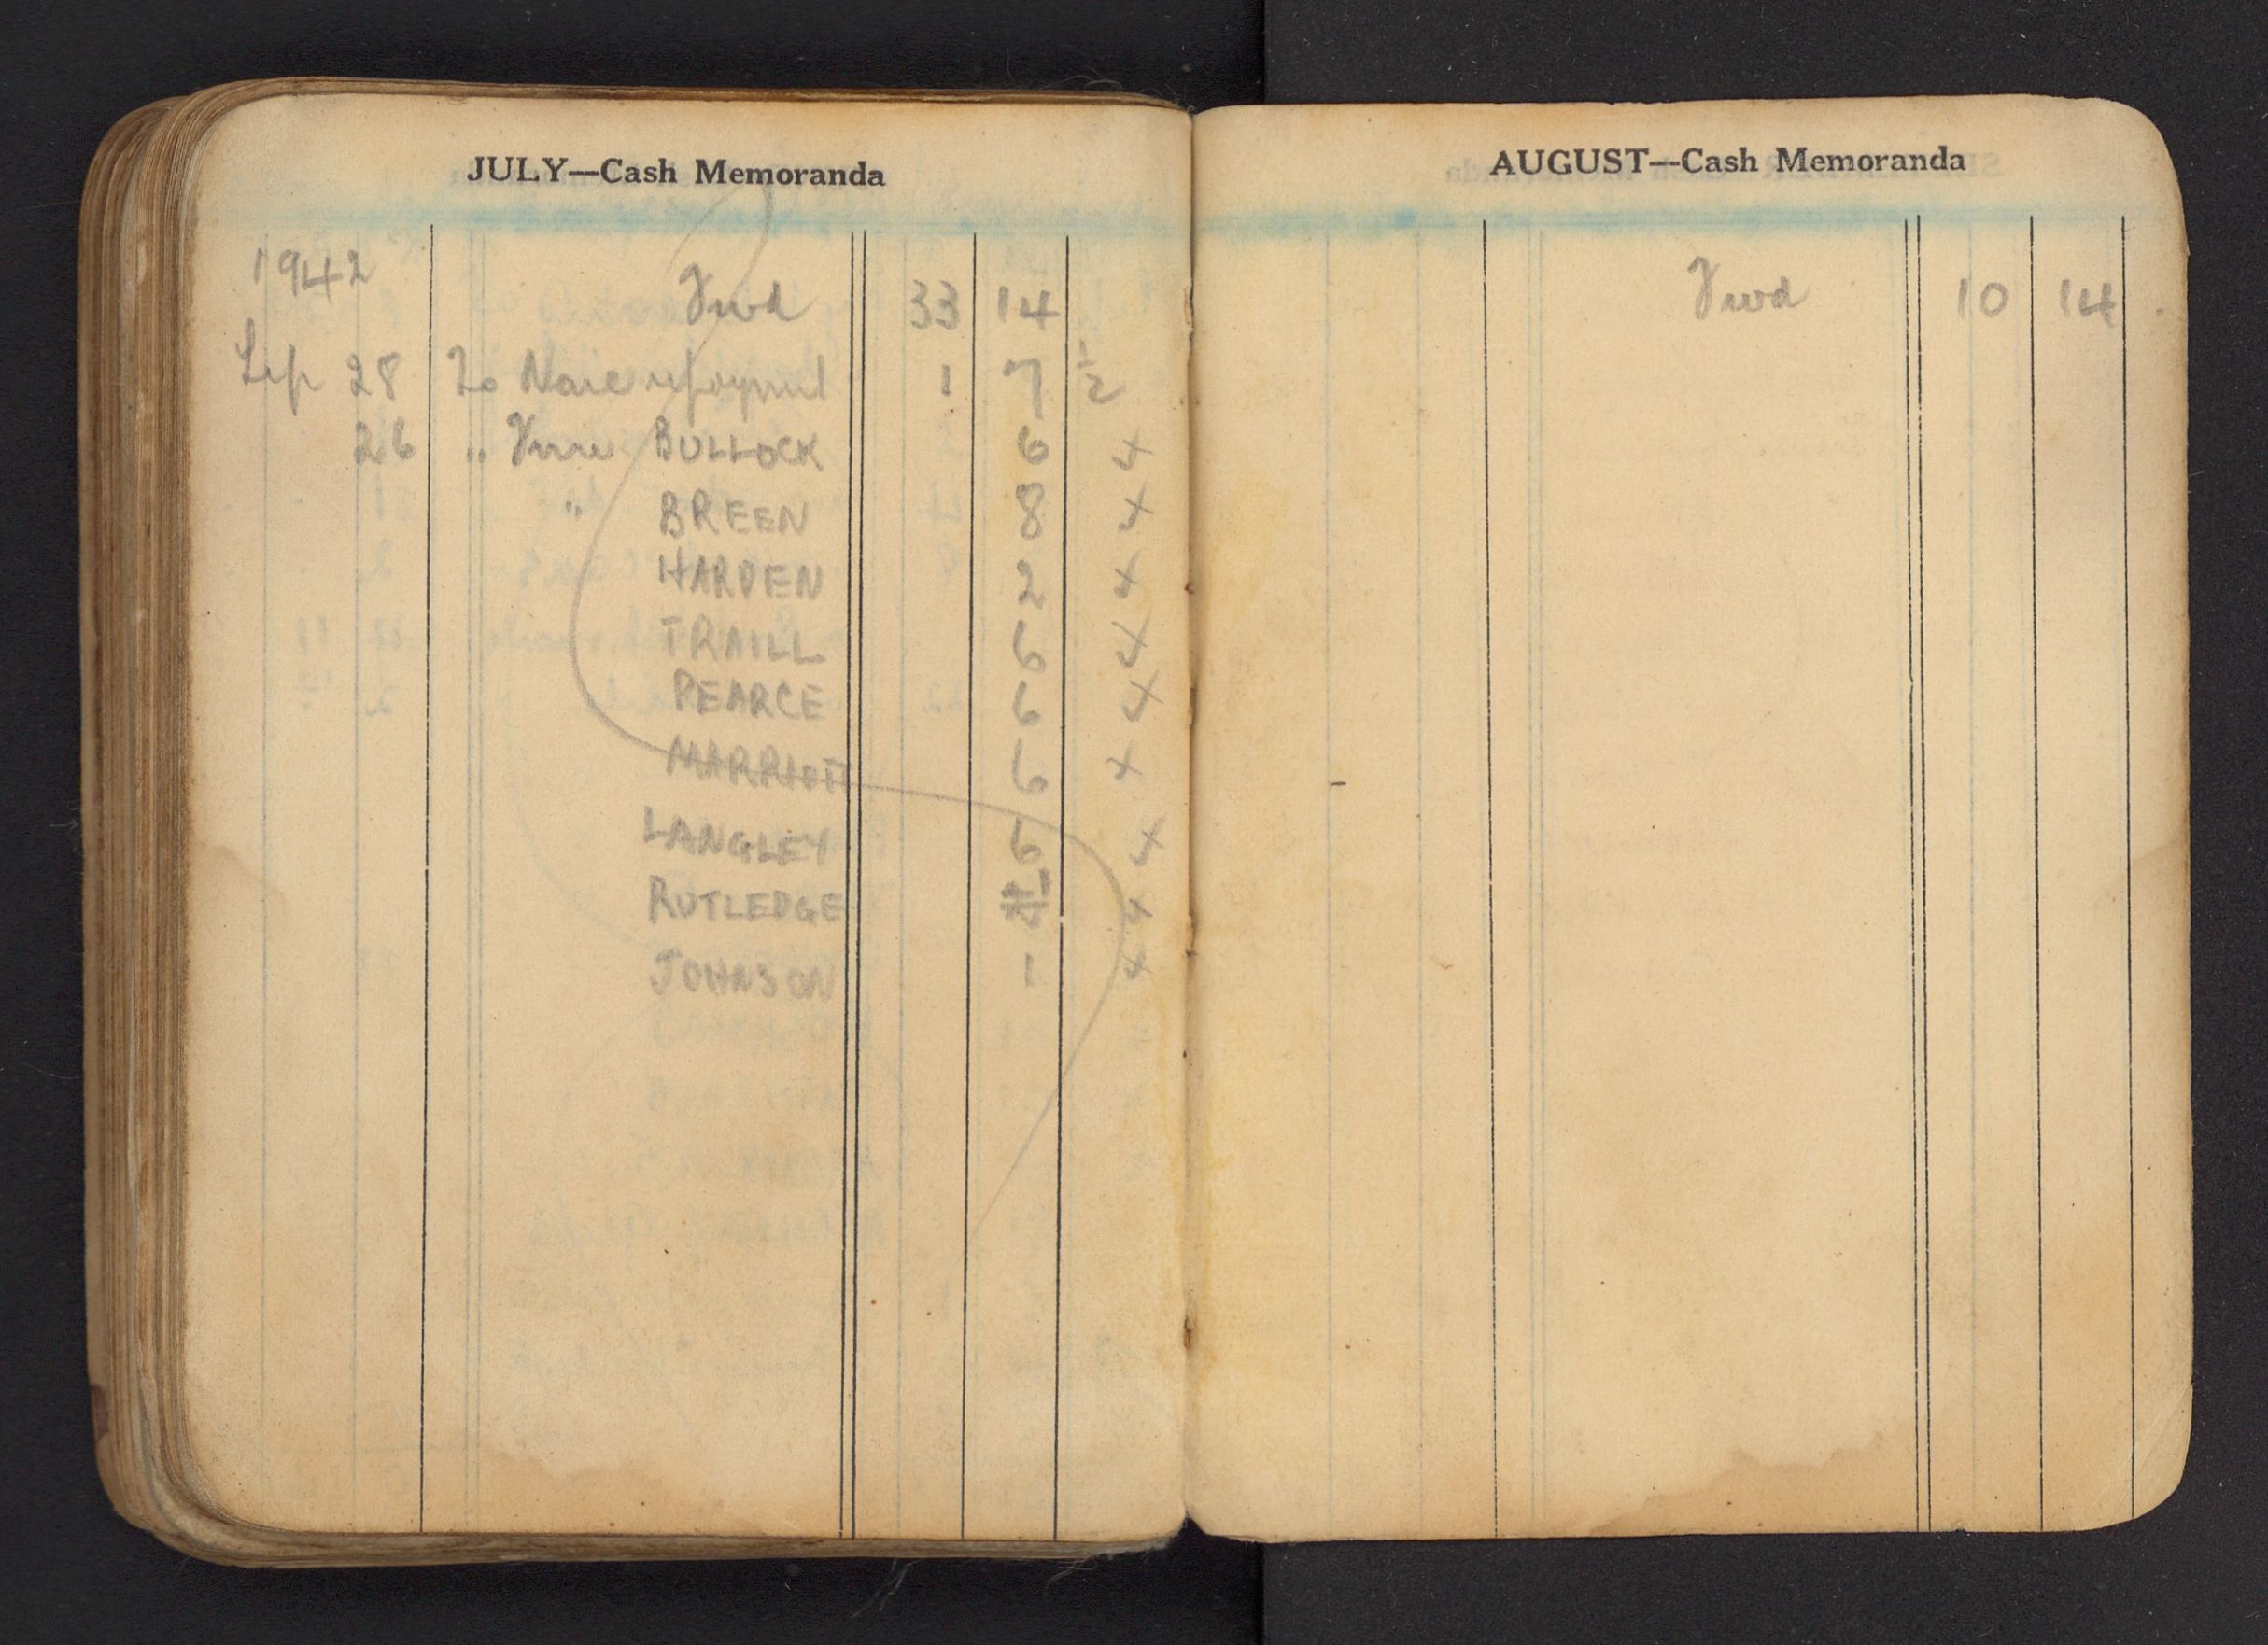 JULY—Cash Memoranda
1942
Fwd 33 14
Sep 28 To Naie repayment 1 7 ½
26 " Fines BULLOCK 6 x
" BREEN 8 x
HARDEN 2 x
TRAILL 6 x
PEARCE 6 x
MARRIOTT 6 x
LANGLEY 6 x
RUTLEDGE x
JOHNSON 1 x
AUGUST—Cash Memoranda
Fwd 10 14